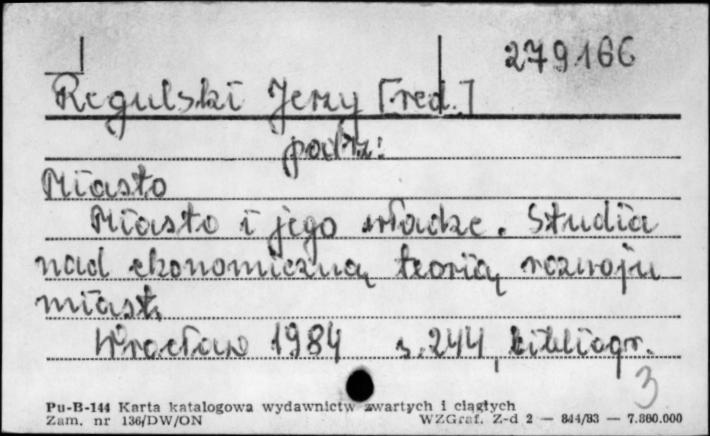 279166
Regulski Jerzy [red.]
patrz:
Miasto
Miasto i jego władze. Studia
nad ekonomiczną teorią rozwoju
miast,
Wrocław 1984 s. 244, bibliogr.
3
Pu-B-144 Karta katalogowa wydawnictw zwartych i ciągłych
Zam. nr 136/DW/ON WZGraf. Z-d 2 — 844/83 — 7.880.000